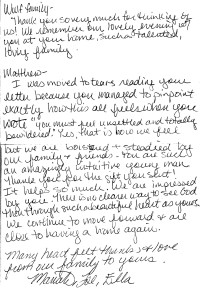 Wulf family -
Thank you so very much for thinking of
us! We remember our lovely evening w/
you at your home, such a talented,
loving family.
Matthew -
I was moved to tears reading your
letter because you managed to pinpoint
exactly how this all feels when you
wrote "you must feel unsettled and totally
bewildered." Yes, that is how we feel
but we are + steadied by
our family & friends. You are such
an amazingly intuitive young man
Thank God for the gift you share!
It helps so much. We are impressed
by you. There is no clearer way to see God
than through such a beautiful heart as yours.
We continue to move forward & are
close to having a home again.
Many heart felt thanks & love
from our family to yours.
Ella